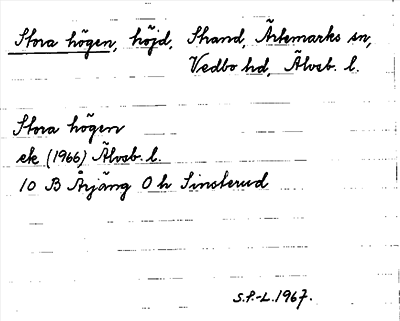 Stora högen, höjd, Strand, Ärtemarks sn,
Vedbo hd, Älvsb. l.
Stora högen
ek (1966) Älvsb. l.
10 B Årjäng 0 h Sinsterud
S.F.-L. 1967.